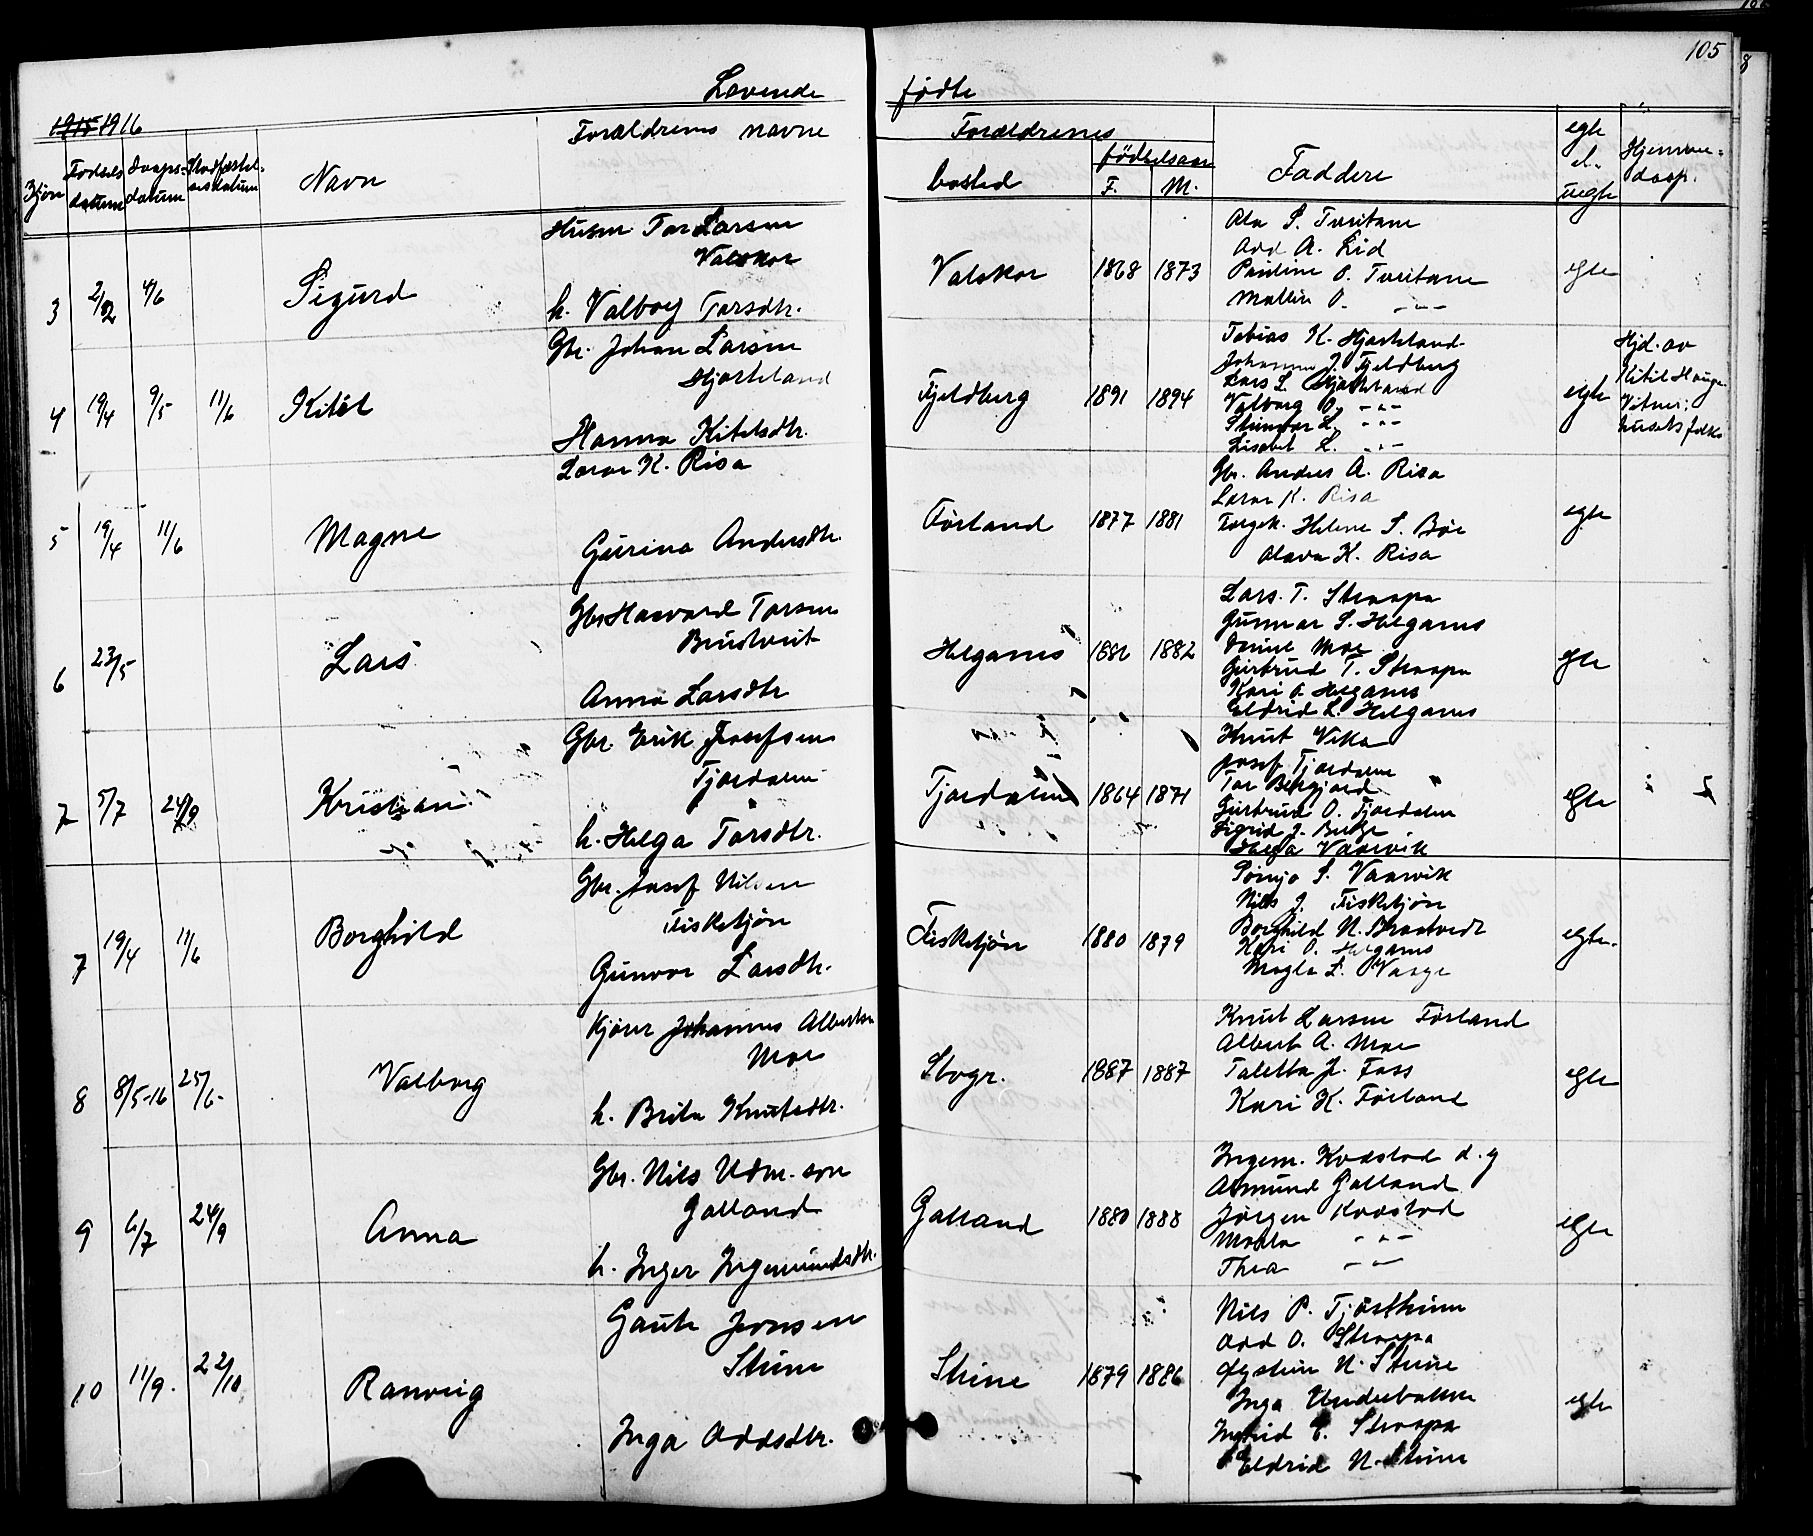 105
Levende fødte
1915 1916
Forældrenes navne
Forældrenes
egte
el.
uegte
Hjemme-
daap.
Fødsels
datum
Daaps-
datum
Stadfæstel-
sesdatum
Navn
bosted
fødselsaar
F. M.
Faddere
3 2/2 4/6 Sigurd
Husm Tor Larsen
Valskor
h. Valborg Torsdtr.
Valskor 1868 1873
Ola S. Tveitane
Odd A. Lid
Pauline O. Tveitane
Mallin O. -"-
egte
4 19/4 9/5 11/6 Kitel
Gbr. Johan Larsen
Hjorteland
Hanna Kitelsdtr.
Fjeldberg 1891 1894
Tobias K. Hjorteland
Johannes J. Fjeldberg
Lars L. Hjorteland
Valborg O. -"-
Steinvor L. -"-
Lisabet L. -"-
egte
Hjd. av
Kitil Hauge
Vitner:
husets folk
5 19/4 11/6 Magne
Lars K. Risa
Gurina Andersdtr.
Førland 1877 1881
Gbr. Anders A. Risa
Lars K. Risa
Helene S. Bøe
Olava K. Risa
egte
6 23/5 Lars
Gbr Haavard Torsen
Brustveit
Anna Larsdtr
Helganes 1882
Lars T. Straapa
Gunnar S. Helganes
Daniel Moe
Gurtrud T. Straapa
Kari O. Helganes
Eldrid L. Helganes
egte
7 5/7 24/9 Kristian
Gbr. Erik Josefsen
Tjordalen
h. Helga Torsdtr.
Tjordalen 1864 1871
Knut Vika
Josef Tjordalen
Tor Bergjord
Gurtrud O. Tjordalen
Sigrid J. Birke
Helga Vaarvik
egte
7 19/4 11/6 Borghild
Gbr. Josef Nilsen
Fisketjøn
Gunvor Larsdtr.
Fisketjøn 1880 1879
S. Vaarvik
Nils J. Fisketjøn
Borghild N. Braatvedt
Kari O. Helganes
Magla L. Vaage
egte.
8 8/5-16 25/6- Valborg
Kjører Johannes Albertsen
Moe
h. Brita Knutsdtr.
Stogr. 1887 1887
Knut Larsen Førland
Albert A. Moe
Taletta J. Foss
Kari K. Førland
egte
9 6/7 24/9 Anna
Gbr. Nils Udm.son
Galland
h. Inger Ingemundsdtr.
Galland 1880 1888
Ingem. Kvdstad d.y
Asmund Galland
Jørgen Kvdstad
Magla -"-
Thea -"-
egte
10 11/9. 22/10 Ranveig
Gaute Jonsen
Steine
Inga Oddsdtr.
Steine 1879 1886
Nils P. Tjøstheim
Odd O. Straapa
Øystein N. Steine
Inga Underbakke
Ingrid E. Straapa
Eldrid N. Steine
egte